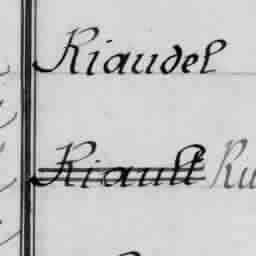 Riaudel
Riault Ru